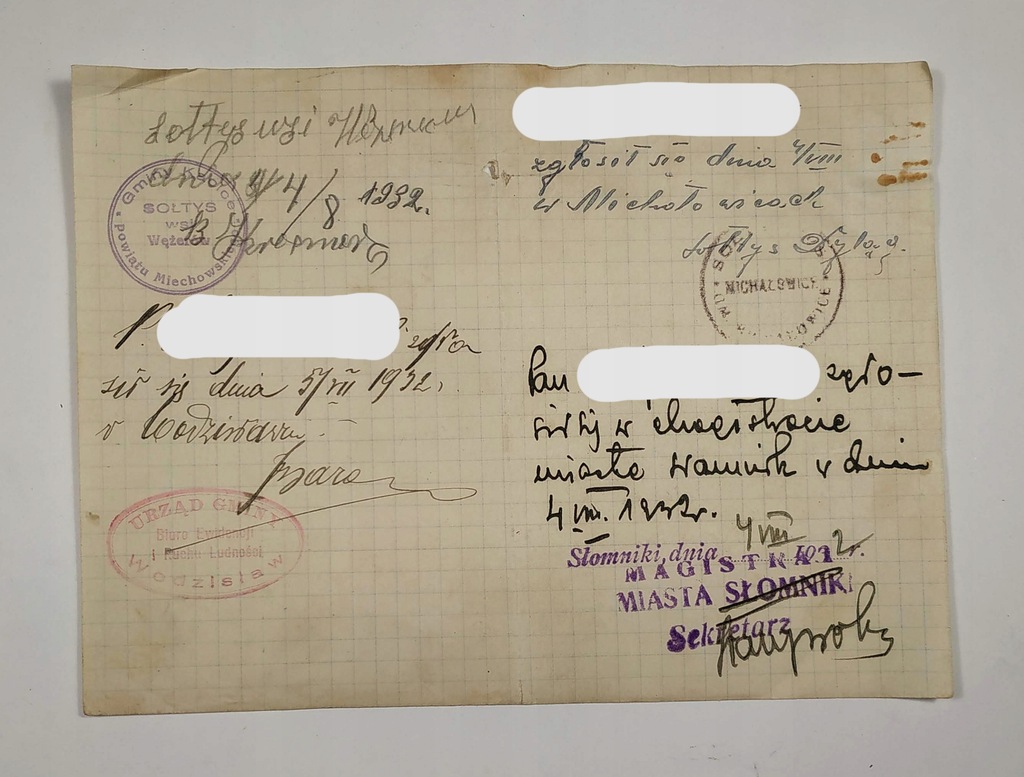 sołtys wsi
dnia 4/8 1932.
Gminy
SOŁTYS
wsi
Wężerów
Powiatu Miechowskiego
P.
zgło
sił się dnia 5/VIII 1932.
w Wodzisławiu
URZĄD GMINY
Biuro Ewidencji
i Ruchu Ludności
Wodzisław
zgłosił się dnia 4/VIII
w Michałowicach
sołtys
MICHAŁOWICE
Pan zgło-
sił się w Magistracie
miasta Słomnik w dniu
4 VIII. 1932r.
Słomniki, dnia 4 VIII 1932r.
MAGISTRAT
MIASTA SŁOMNIKI
Sekretarz